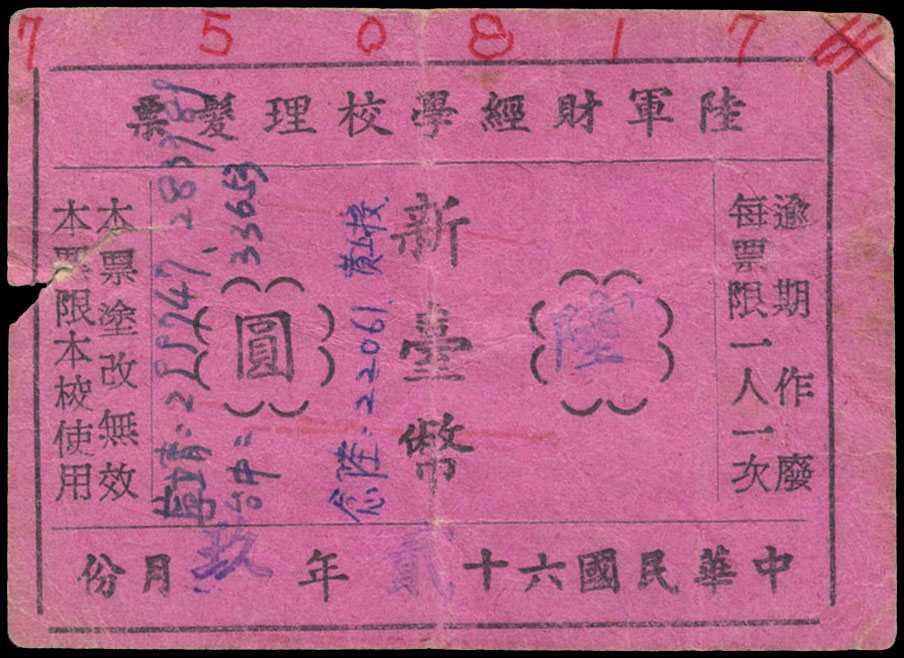 7 5 0 8 1 7
陸軍財經學校理髮票
逾期作廢
每票限一人一次
陸
新臺幣
念陸:22061
圓
台中=33653
283789
本票塗改無效
本票限本校使用
中華民國六十貳年玖月份